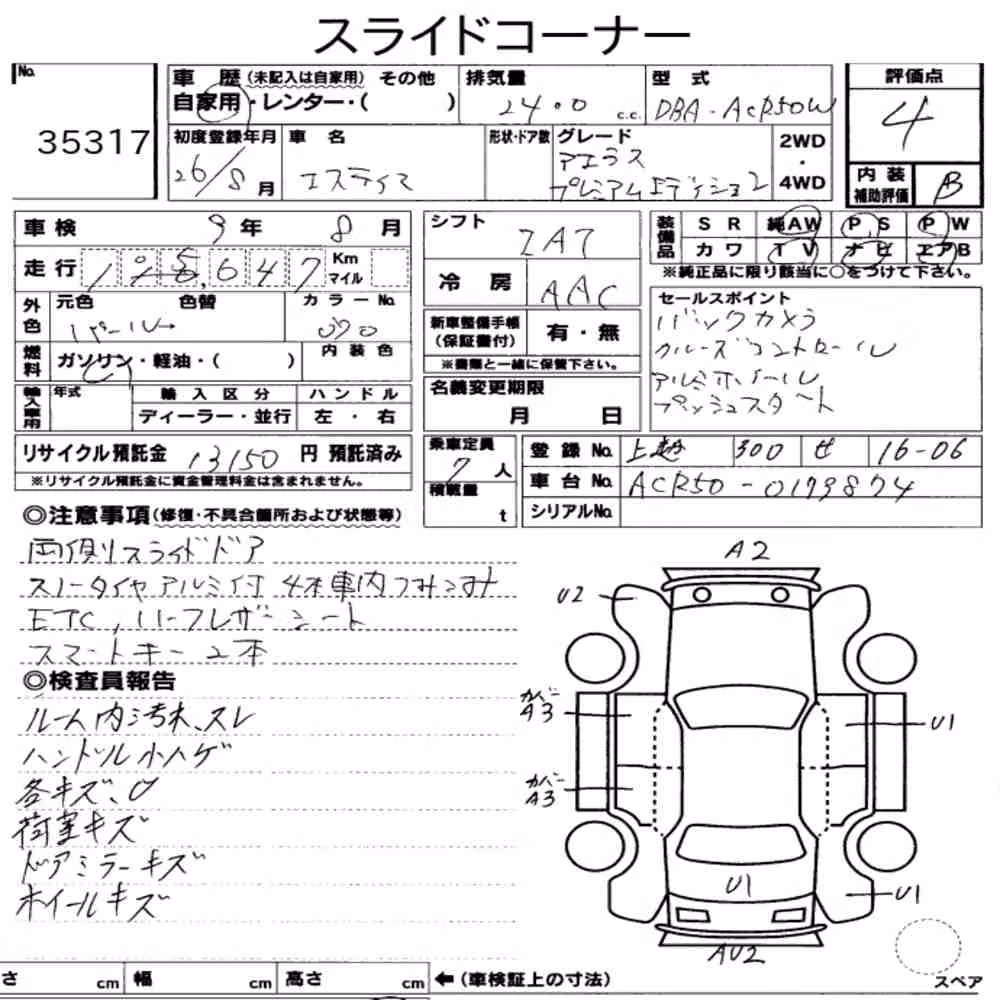 スライドコーナー
No. 35317
車歴 (未記入は自家用) その他
自家用・レンター・( )
排気量 2400 c.c.
型式 DBA-ACR50W
評価点 4
初度登録年月 26/8月
車名 エスティマ
形状・ドア数
グレード アエラス
プレミアムエディション
2WD・4WD
内装補助評価 B
車検 9年 8月
走行 647 Km マイル
外色 元色 色替 カラーNo.
パール→ 070
燃料 ガソリン・軽油・( ) 内装色
輸入車用 年式 輸入区分 ハンドル
ディーラー・並行 左・右
リサイクル預託金 13150円 預託済み
※リサイクル預託金に資金管理料金は含まれません。
シフト IAT
冷房 AAC
新車整備手帳(保証書付) 有・無
※書類と一緒に保管下さい。
名義変更期限
月 日
乗車定員 7人
積載量 t
装備品 SR 純AW PS PW
カワ TV ナビ エアB
※純正品に限り該当に○をつけて下さい。
セールスポイント
バックカメラ
クルーズコントロール
アルミホイール
プッシュスタート
登録No. 上越 300 せ 16-06
車台No. ACR50-0179874
シリアルNo.
◎注意事項(修復・不具合箇所および状態等)
両側スライドドア
スノータイヤアルミ付 4本車内つみこみ
ETC, ハーフレザーシート
スマートキー2本
◎検査員報告
ルーム内汚れ、スレ
ハンドル小ハゲ
各キズ、U
荷室キズ
ドアミラーキズ
ホイールキズ
A2
U2
カバー A3
U1
カバー A3
U1
U1
AU2
スペア
さ cm 幅 cm 高さ cm ←(車検証上の寸法)